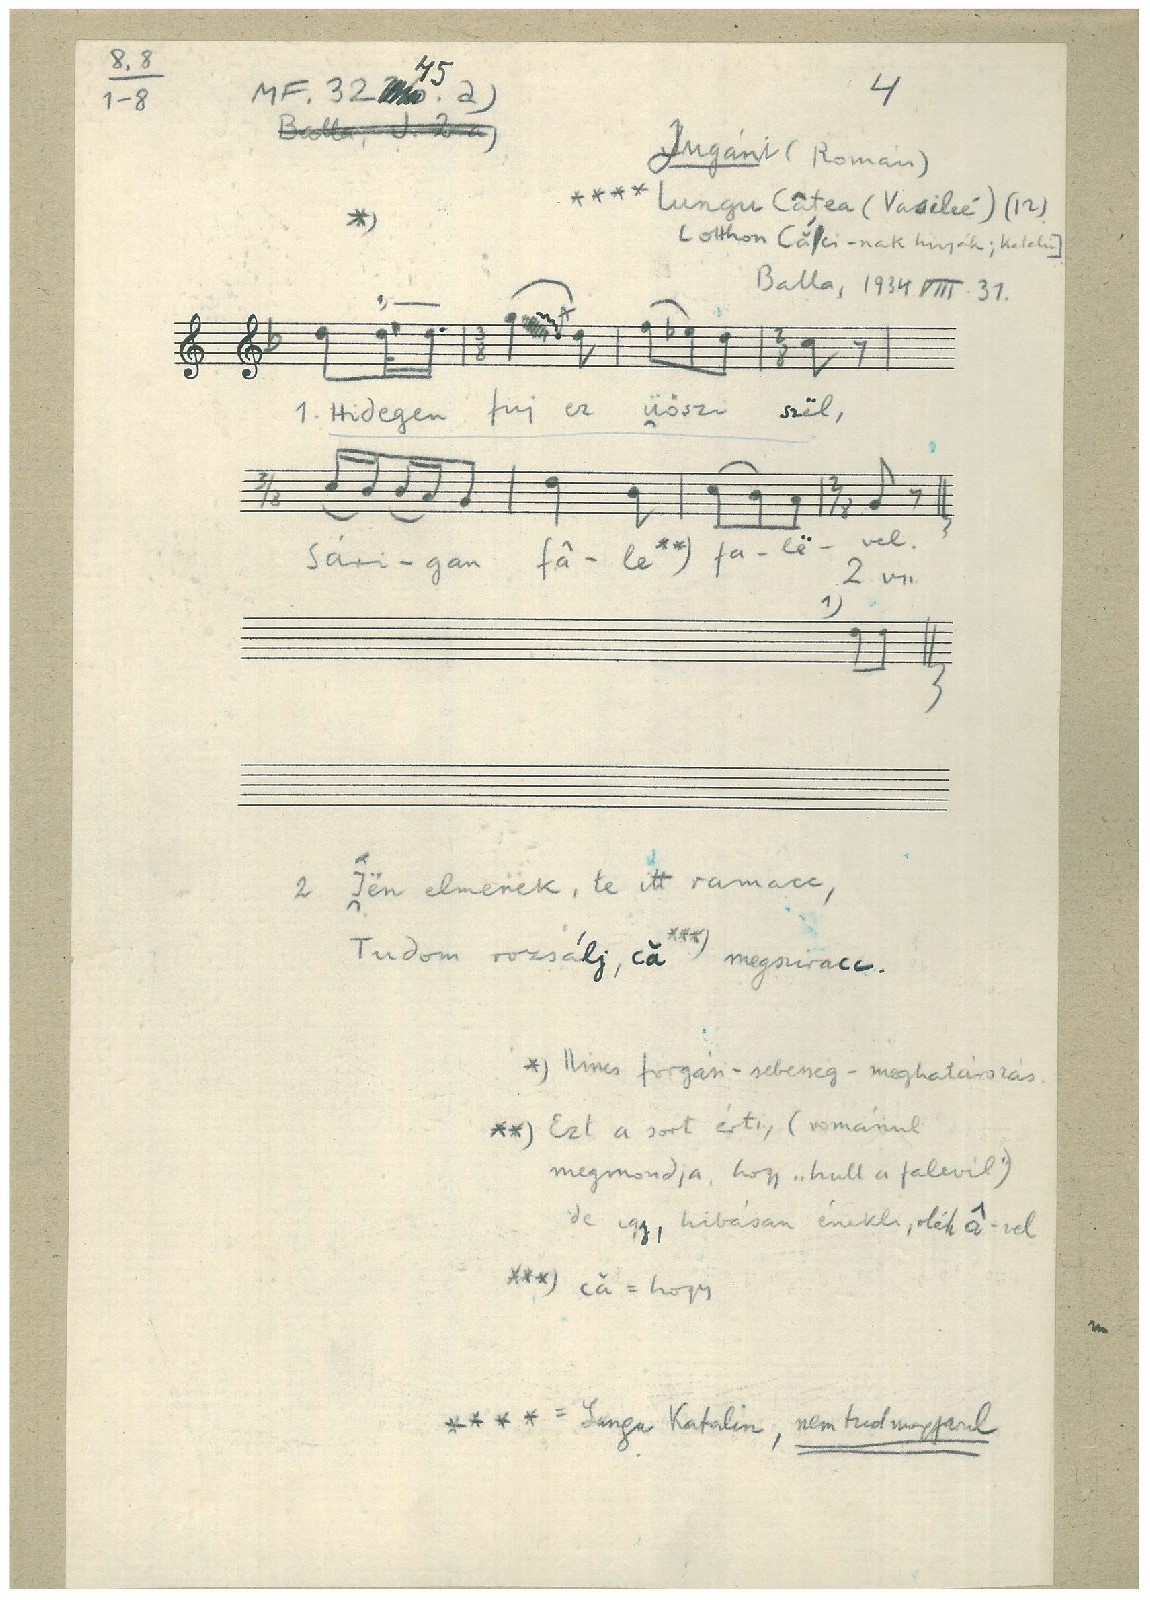 8, 8
1-8
MF. 32 45. a)
Balla, J. 2 a)
4
Jugáni (Román)
**** Lungu Câtea (Vasileé) (12)
[otthon -nak hívják;
Balla, 1934 VIII. 31.
*)
1)
3/8
2/8
1. Hidegen fuj ez üöszi szël,
3/8
2/8
Sári-gan fâ-le**) fa-lë-vel.
2 vn.
1)
2 Ĵën elmenek, te itt ramacc,
Tudom rozsálj, că***) megsiracc.
*) Nincs forgási-sebesség-meghatározás.
**) Ezt a sort érti, (románul
megmondja, hogy „hull a falevil")
de így, hibásan énekli, oláh â-vel
***) că = hogy
**** = Lungu Katalin, nem tud magyarul